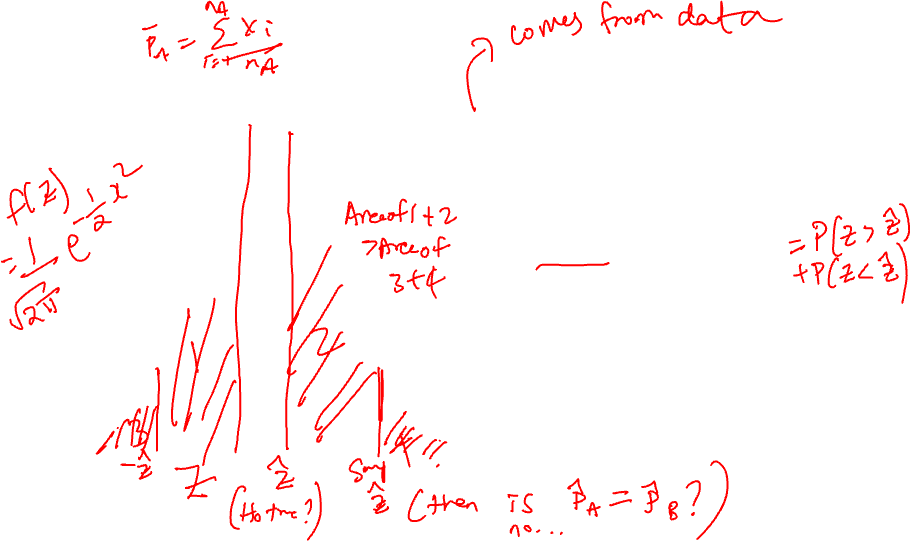 p̄_A = Σ_{i=1}^{n_A} x_i / n_A
comes from data
f(z) = 1/√2π e^{-1/2 x^2}
Area of 1 + 2
> Area of
3 + 4
= P(z > ẑ)
+ P(z < ẑ)
2
4
-ẑ
Z
ẑ
ẑ
(Ho true?)
(then is p̂_A = p̂_B?)
no...